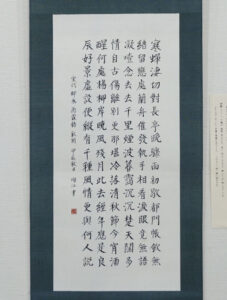 寒蟬淒切對長亭晚驟雨初歇都門帳飲無
緒留戀處蘭舟催發執手相看淚眼竟無語
凝噎念去去千里煙波暮靄沉沉楚天闊多
情自古傷離別更那堪冷落清秋節今宵酒
醒何處楊柳岸曉風殘月此去經年應是良
辰好景虛設便縱有千種風情更與何人說
宋代柳永雨霖鈴 書